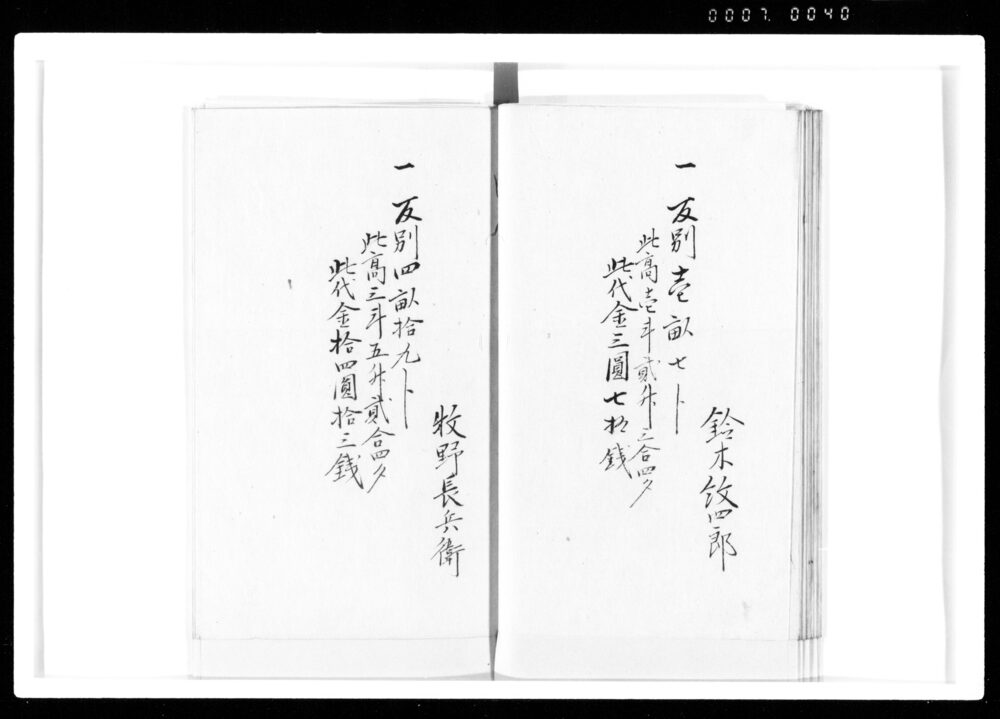 0007. 0040
鈴木紋四郎
一 反別壱畝七卜
此高壱斗貳升三合四夕
此代金三圓七拾銭
牧野長兵衛
一 反別四畝拾九卜
此高三斗五升貳合四夕
此代金拾四圓拾三銭